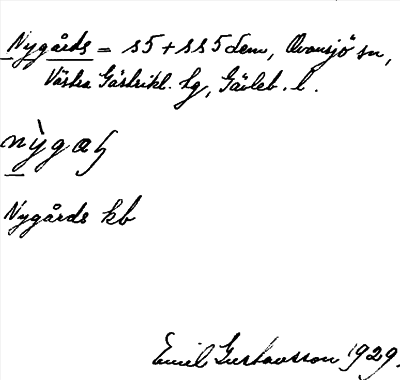 Nygårds = s5 + ss5 dem, Ovansjö sn,
Västra Gästrikl. hg, Gävleb. l.
nỳgaꞕ
Nygårds kb
Emil Gustavsson 1929.